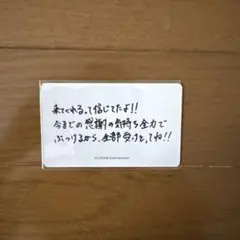 来てくれるって信じてたよ!!
今までの感謝の気持ち全力で
ぶつけるから、全部受けとってね!!